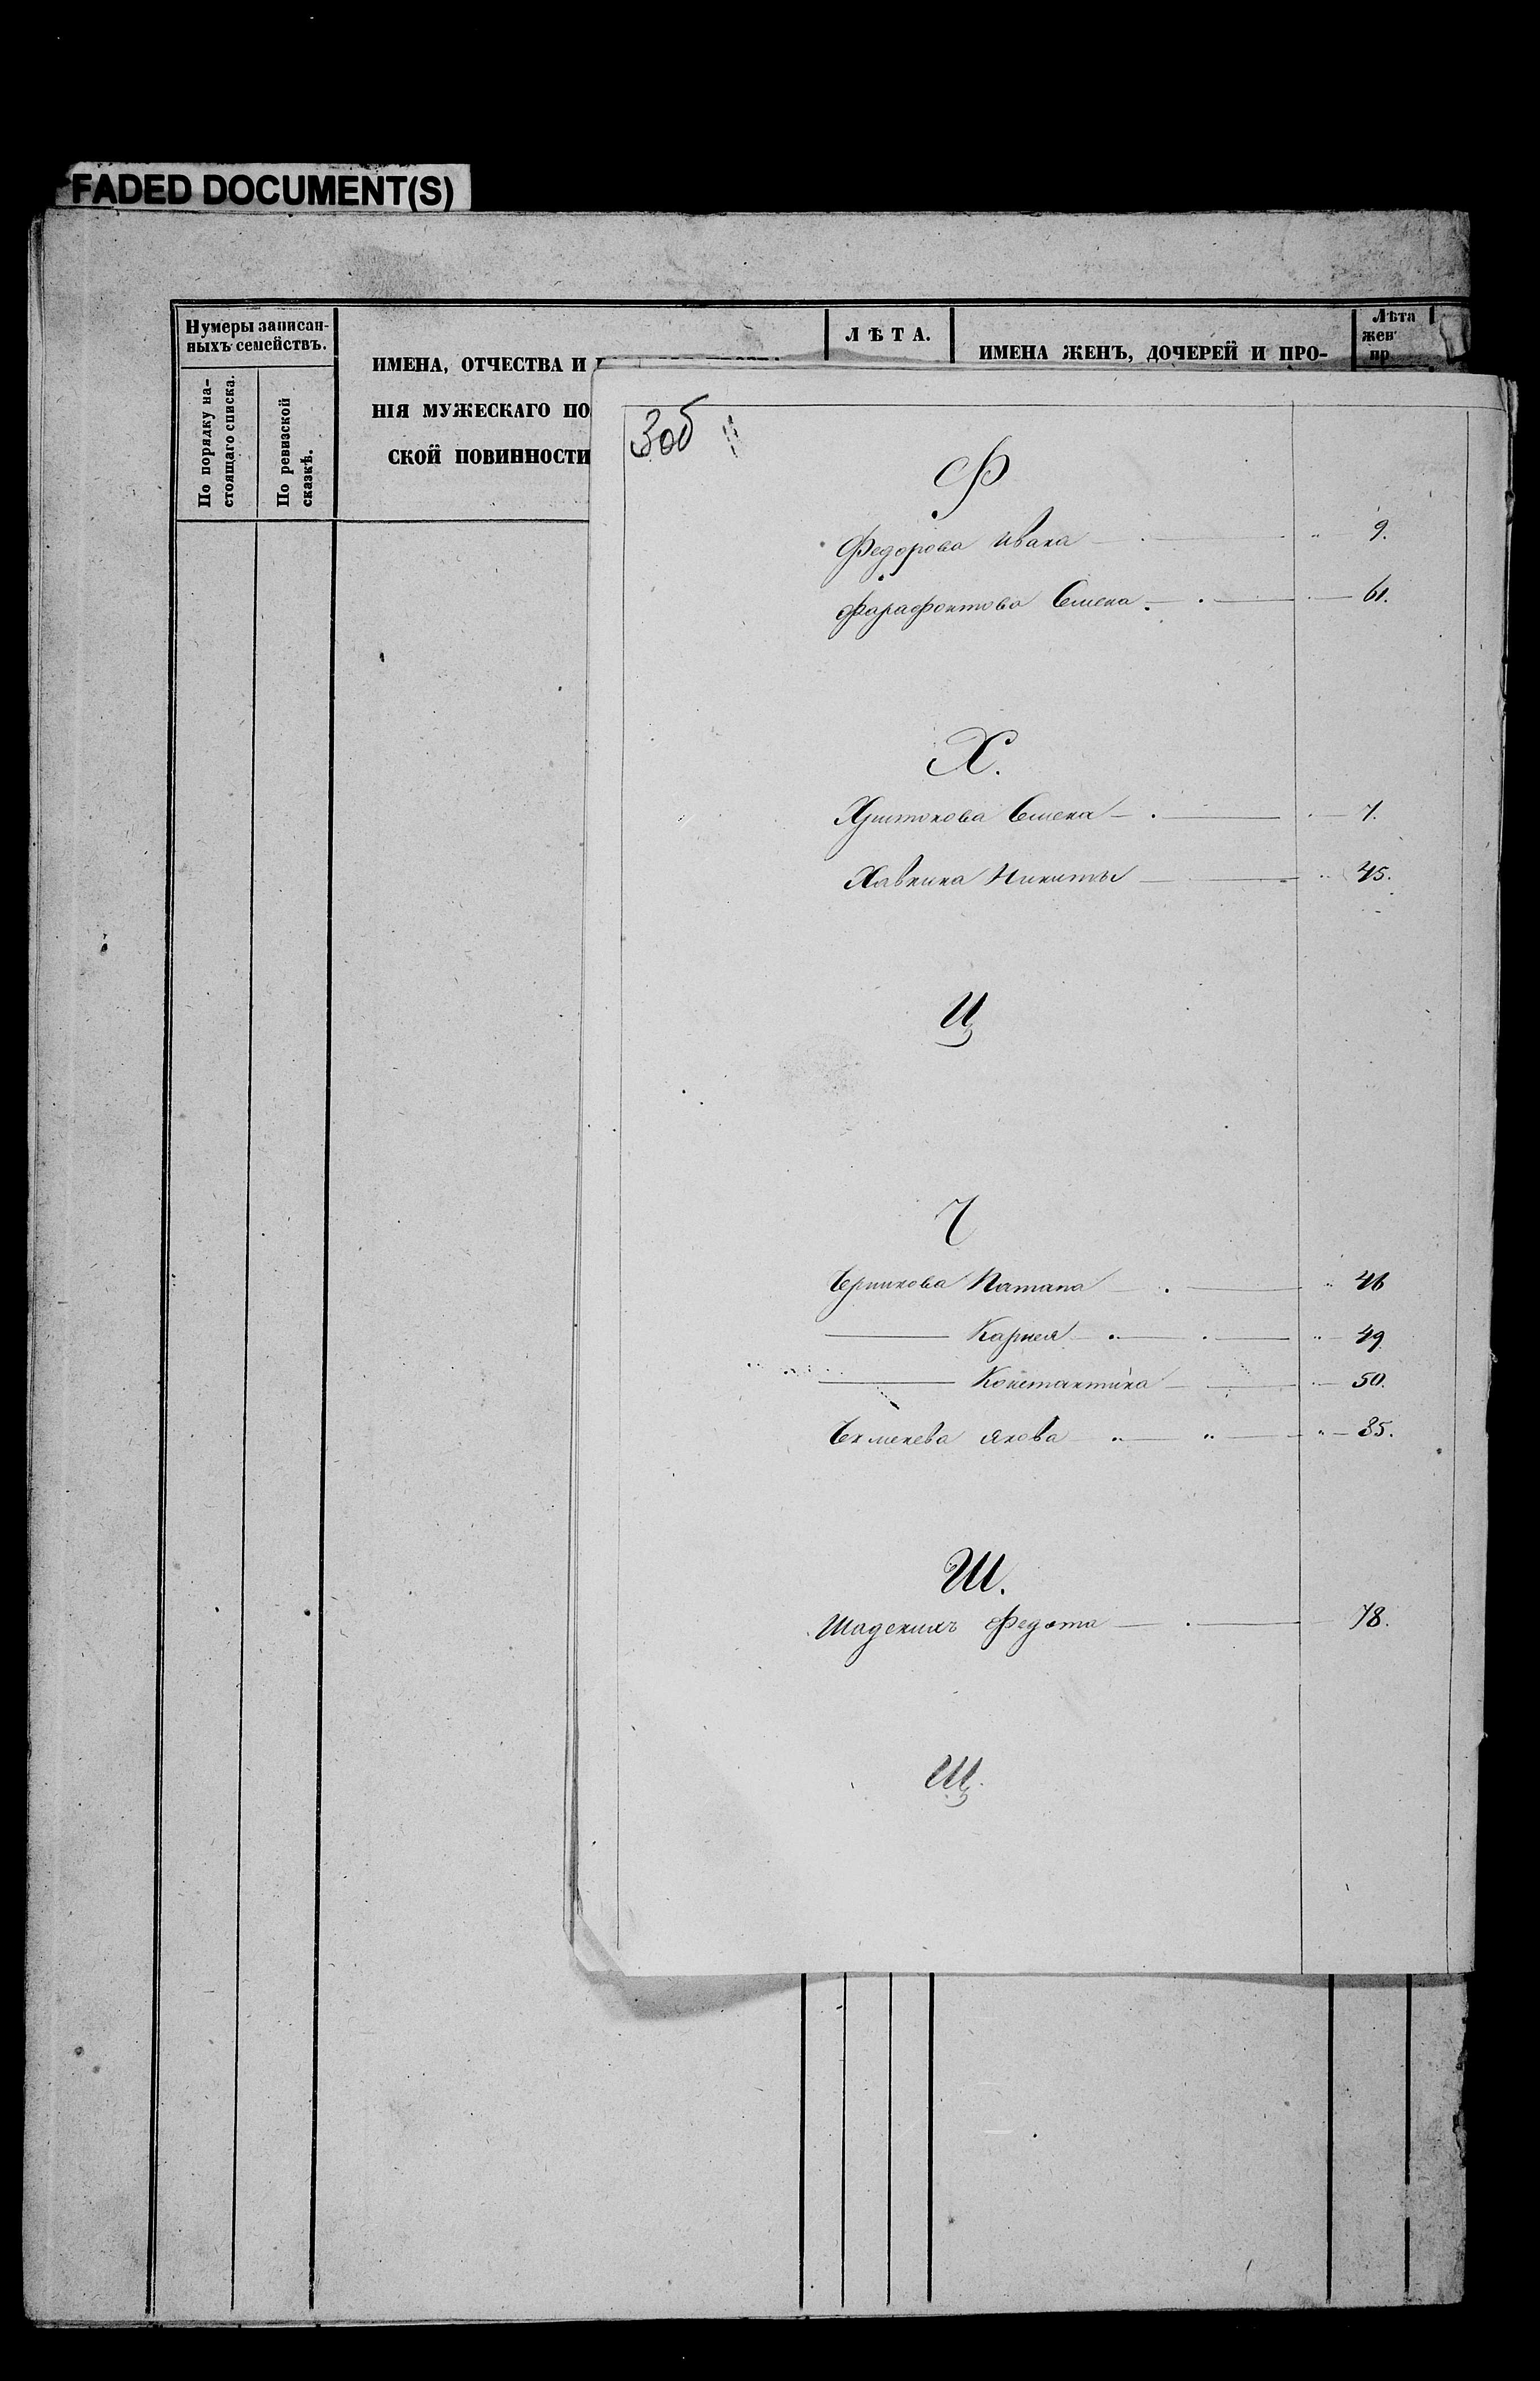 FADED DOCUMENT(S)
Нумеры записан-
ныхъ семействъ.
По порядку на-
стоящаго списка.
По ревизской
сказкѣ.
ИМЕНА, ОТЧЕСТВА И
НІЯ МУЖЕСКАГО ПО
СКОЙ ПОВИННОСТИ
ЛѢТА.
ИМЕНА ЖЕНЪ, ДОЧЕРЕЙ И ПРО-
Лѣта
жен
пр
3об
Ф
Федорова Ивана 9.
Фарафонтова Семена 61.
Х.
Харитонова Семена 7.
Хавкина Никиты 45.
Ц
Ч
Потапа 46
Карнея 49
Константина 50.
Чекменева Якова 35.
Ш.
Шадскихъ Федота 78.
Щ.